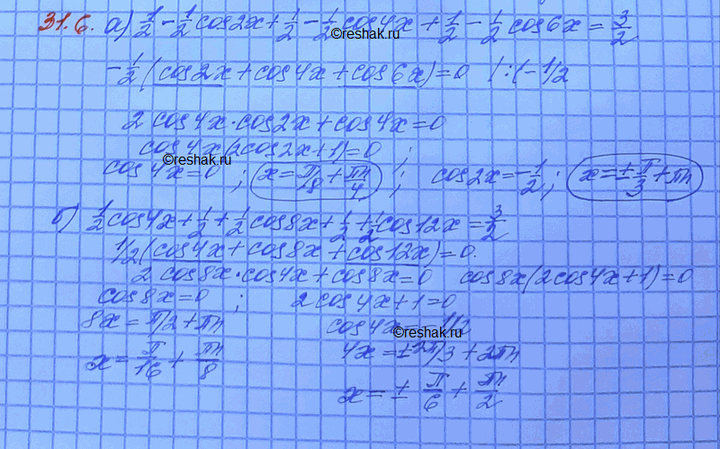 31.6. а) 1/2 - 1/2 cos2x + 1/2 - 1/2 cos4x + 1/2 - 1/2 cos6x = 3/2
©reshak.ru
-1/2 (cos2x + cos4x + cos6x) = 0 | : (-1/2
2 cos4x·cos2x + cos4x = 0
cos4x(2cos2x+1) = 0 ;
©reshak.ru
cos4x = 0 ; x = π/8 + πn/4 ; cos2x = -1/2 ; x = ± π/3 + πn
б) 1/2 cos4x + 1/2 + 1/2 cos8x + 1/2 + 1/2 cos12x = 3/2
1/2 (cos4x + cos8x + cos12x) = 0.
2 cos8x·cos4x + cos8x = 0 cos8x(2cos4x+1) = 0
cos8x = 0 ; 2cos4x + 1 = 0
8x = π/2 + πn cos4x = -1/2
©reshak.ru
4x = ± 2π/3 + 2πn
x = π/16 + πn/8
x = ± π/6 + πn/2